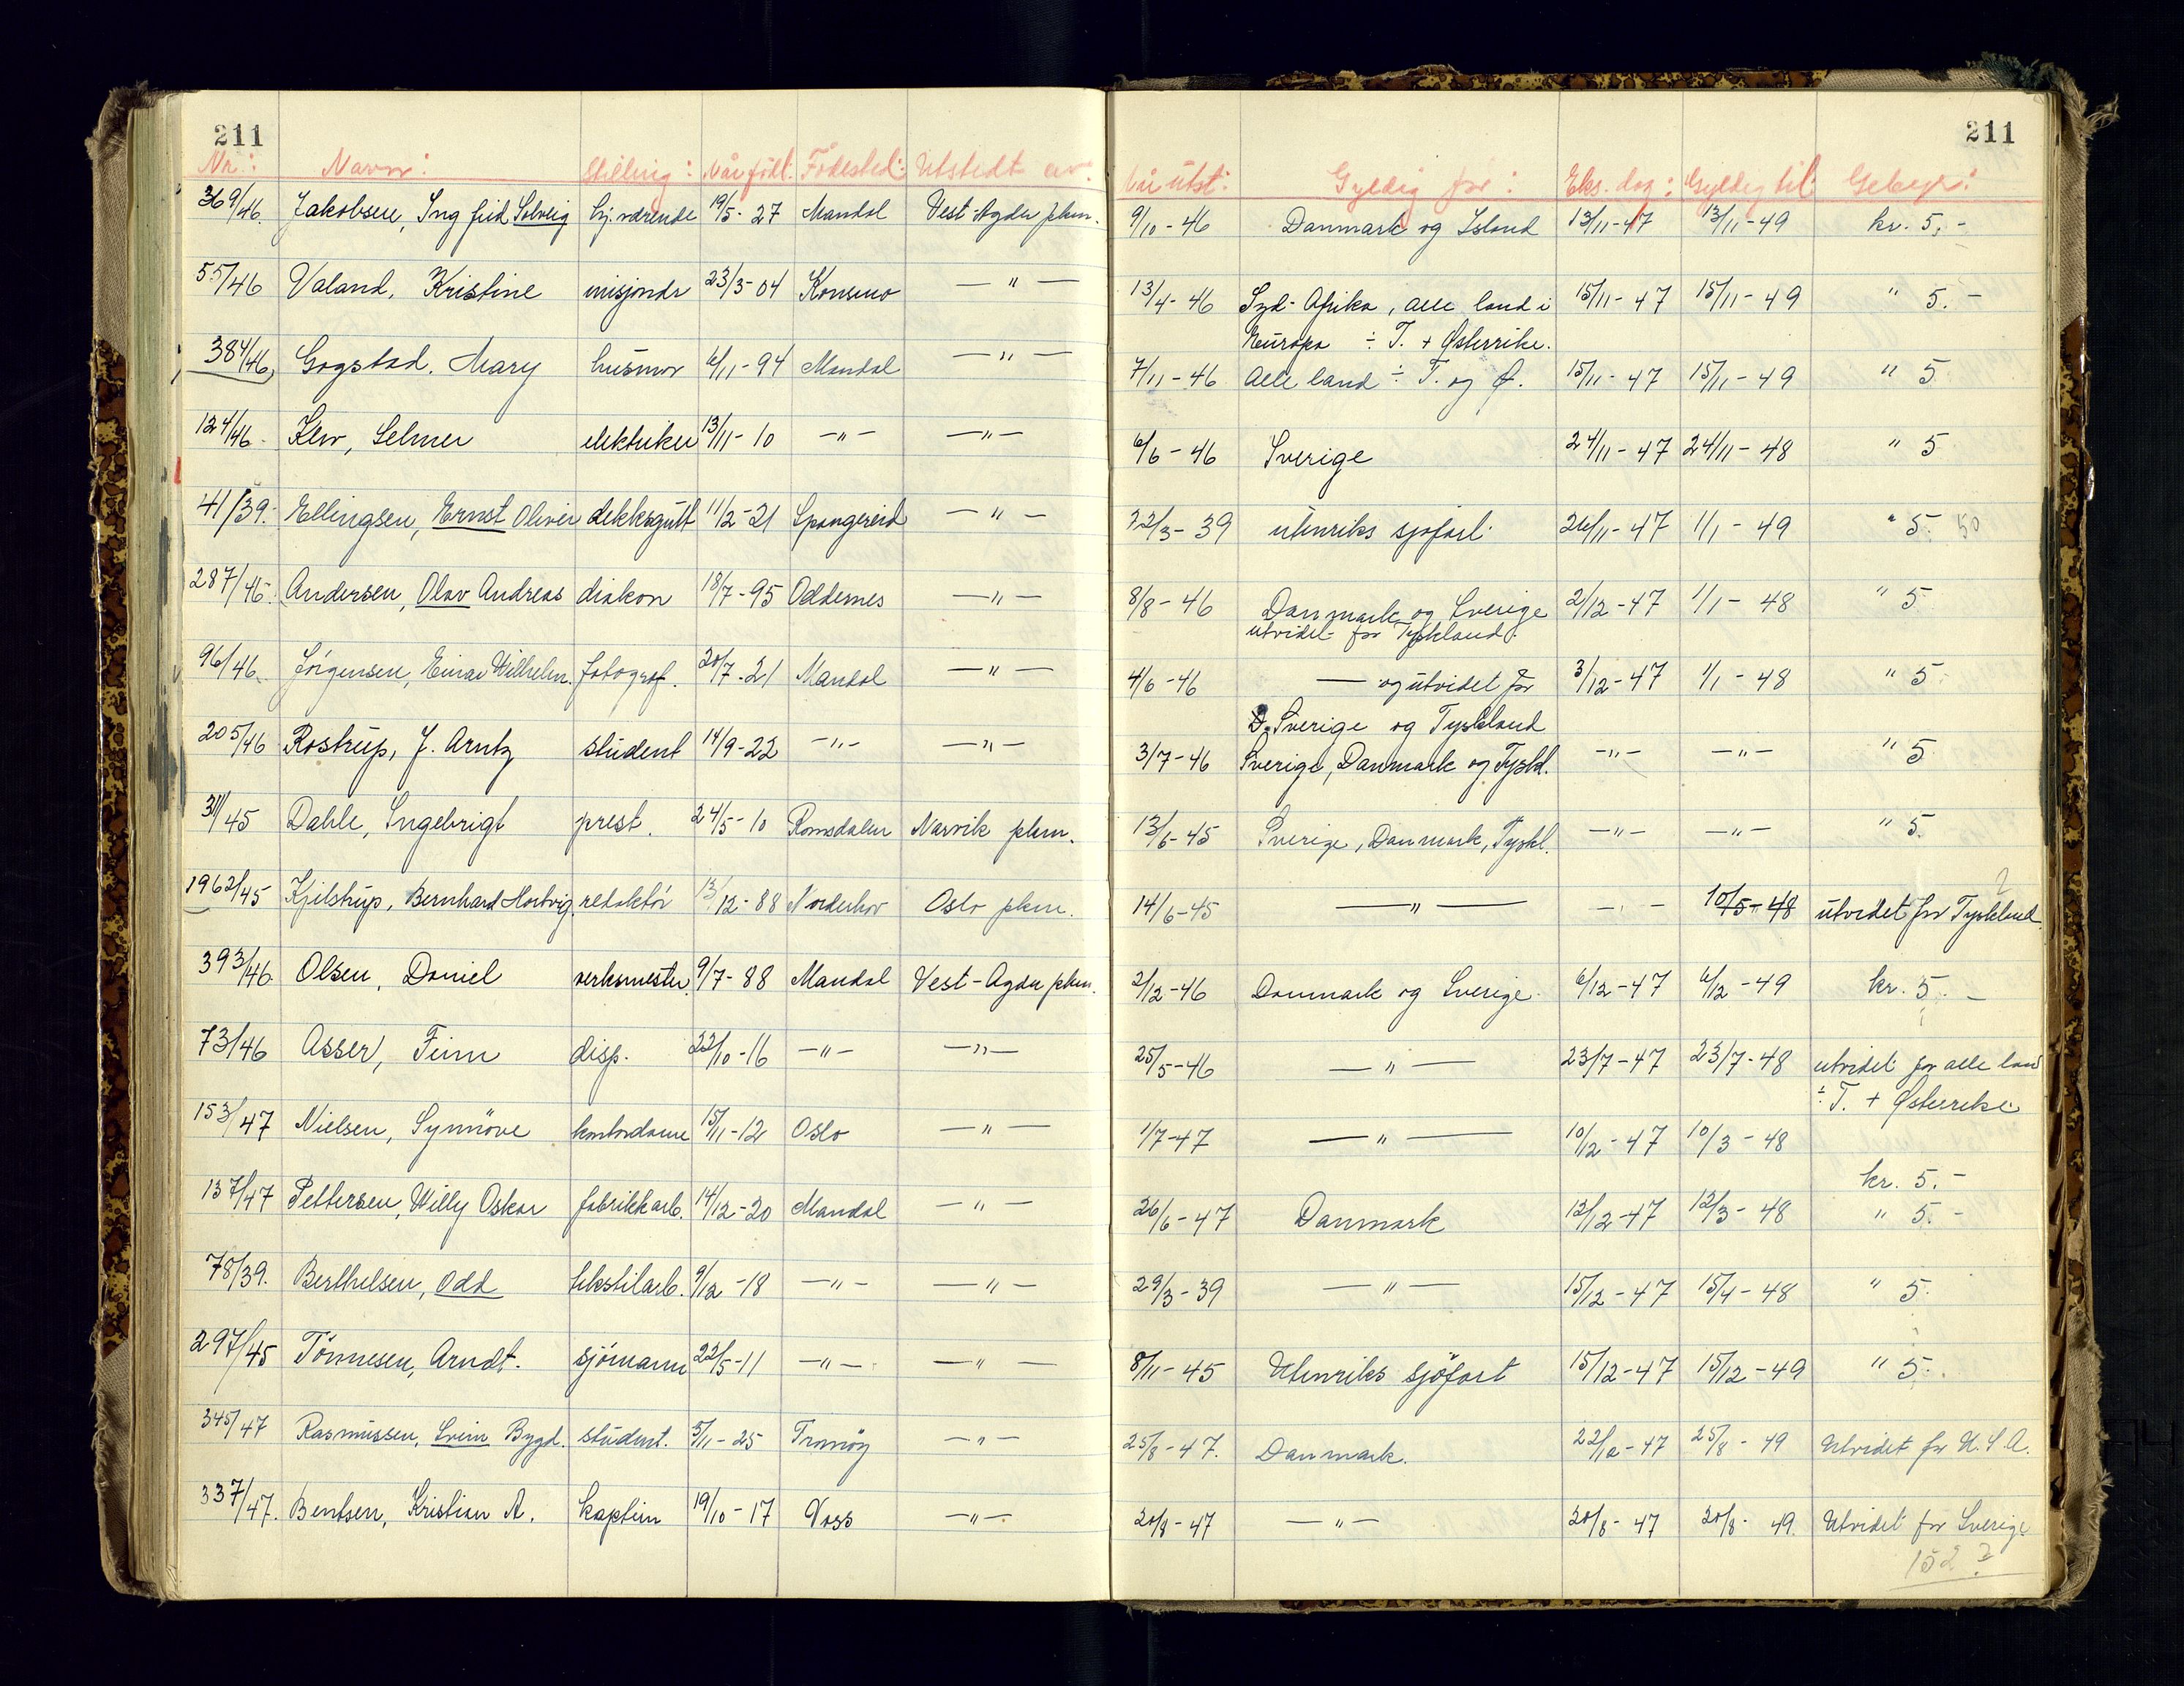 211 211
Nr.: Navn: Stilling: Når født: Fødested: Utstedt av: Når utst: Gyldig for: Eks. dag: Gyldig til: Gebyr:
369/46. Jakobsen, Ingfrid Solveig hj.værende 19/5-27 Mandal Vest-Agder pkm. 9/10-46 Danmark og Island 13/11-47 13/11-49 kr. 5,-
55/46 Valand, Kristine misjonær 23/3-04 Konsmo —"— 13/4-46 Syd-Afrika, alle land i 15/11-47 15/11-49 " 5.-
Europa ÷ T. + Østerrike.
384/46, Gogstad, Mary husmor 6/11-94 Mandal —"— 7/11-46 Alle land ÷ T. og Ø. 15/11-47 15/11-49 " 5
124/46. Klev, Selmer elektriker 13/11-10 —"— —"— 6/6-46 Sverige 24/11-47 24/11-48 " 5
41/39. Ellingsen, Ernst Oliver dekksgutt 11/2-21 Spangereid —"— 22/3-39 utenriks sjøfart. 26/11-47 1/1-49 " 5. 50
287/46. Andersen, Olav Andreas diakon 18/7-95 Oddernes —"— 8/8-46 Danmark og Sverige 2/12-47 1/1-48 " 5
utvidet for Tyskland.
96/46. Jörgensen, Einar Wilhelm. fotograf. 20/7-21 Mandal —"— 4/6-46 — og utvidet for 3/12-47 1/1-48 " 5
D. Sverige og Tyskland
205/46 Rostrup, J. Arntz student 14/9-22 —"— —"— 3/7-46 Sverige, Danmark og Tyskl. —"— —"— " 5
311/45 Dahle, Ingebrigt prest. 24/5-10 Romsdalen Narvik pkm. 13/6-45 Sverige, Danmark, Tyskl. —"— —"— " 5.
1962/45 Kjelstrup, Bernhard Hartvig. redaktör 13/12-88 Norderhov Oslo pkm. 14/6-45 —"— —"— 10/5-48 utvidet for Tyskland
393/46. Olsen, Daniel verksmester. 9/7-88 Mandal Vest-Agder pkm. 2/12-46 Danmark og Sverige. 6/12-47 6/12-49 kr. 5.-
73/46 Asser, Finn disp. 22/10-16 —"— —"— 25/5-46 —"— 23/7-47 23/7-48 utvidet for alle land
÷ T. + Østerrike
153/47 Nielsen, Synnöve kontordame 15/11-12 Oslo —"— 1/7-47 —"— 10/12-47 10/3-48
kr. 5.-
137/47 Pettersen, Willy Oskar fabrikkarb. 14/12-20 Mandal —"— 26/6-47 Danmark 12/12-47 12/3-48 " 5.-
78/39. Berthelsen, Odd tekstilarb. 9/12-18 —"— —"— 29/3-39 —"— 15/12-47 15/4-48 " 5.
297/45 Tönnesen, Arndt. sjömann 22/5-11 —"— —"— 8/11-45 Utenriks sjöfart 15/12-47 15/12-49 " 5.
345/47 Rasmussen, Svein Bygd. student. 5/11-25 Tromöy —"— 25/8-47. Danmark. 22/12-47 25/8-49 Utvidet for U.S.A.
337/47. Bentsen, Kristian A. kaptein 19/10-17 Voss —"— 20/8-47 —"— 20/8-47 20/8-49. Utvidet for Sverige